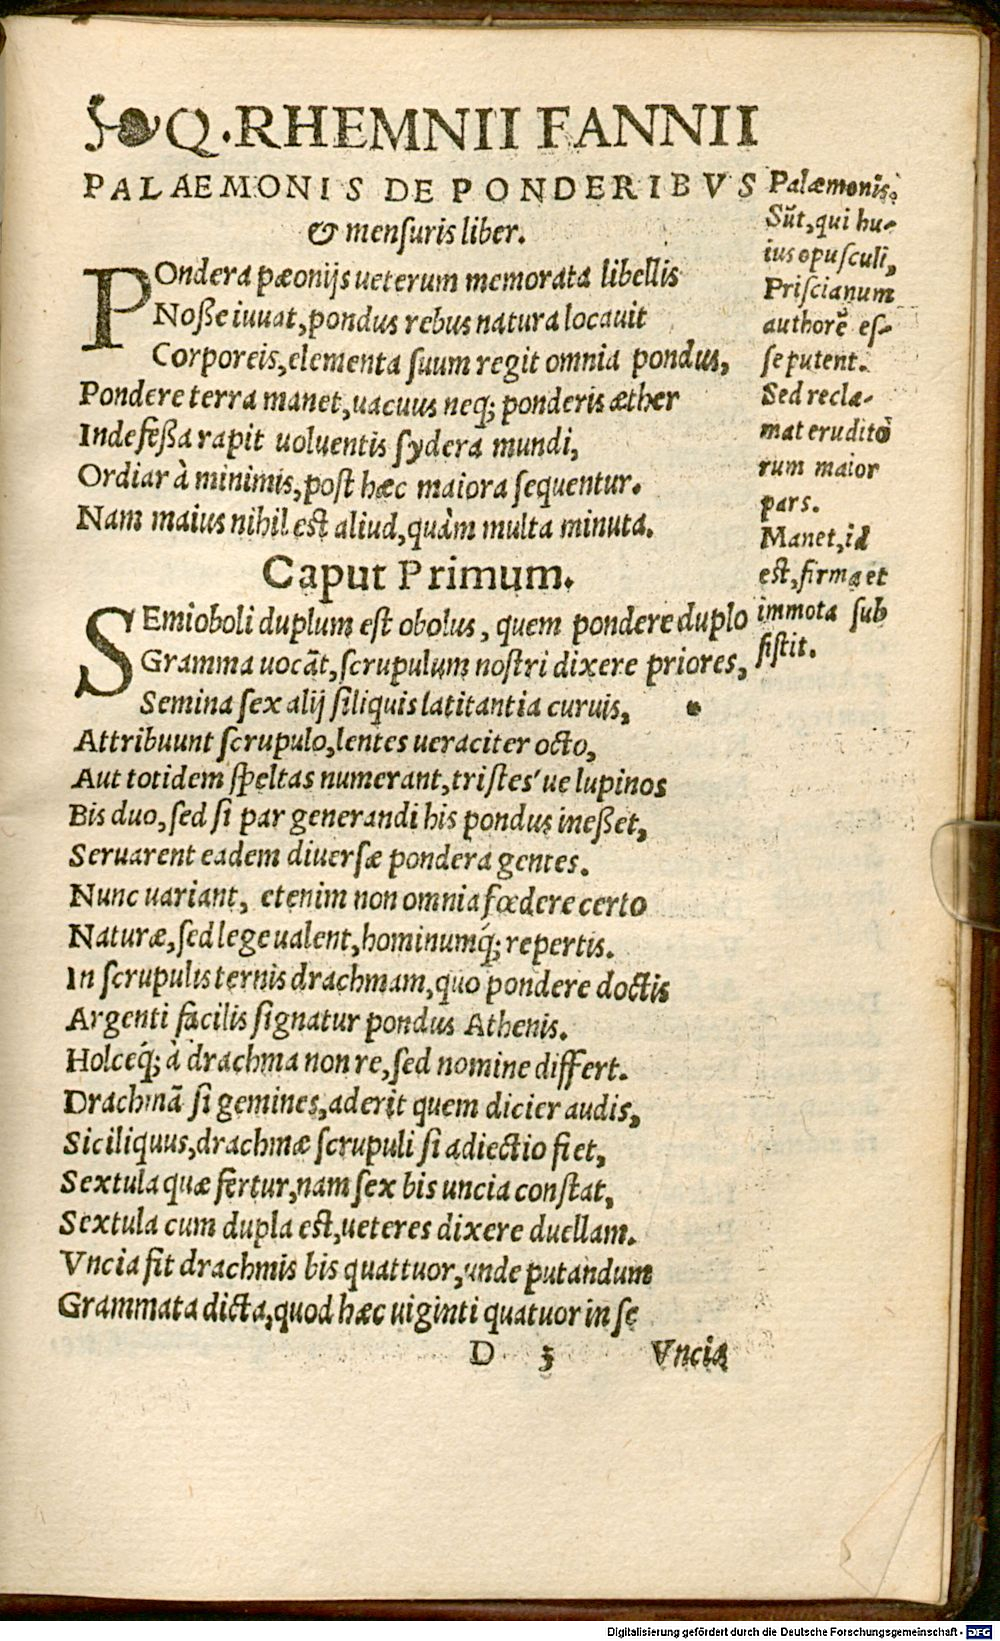 Q. RHEMNII FANNII
PALAEMONIS DE PONDERIBVS
& menſuris liber.
POndera pæonijs ueterum memorata libellis
Noſſe iuuat, pondus rebus natura locauit
Corporeis, elementa ſuum regit omnia pondus,
Pondere terra manet, uacuus neq; ponderis æther
Indefeſſa rapit uoluentis ſydera mundi,
Ordiar à minimis, poſt hæc maiora ſequentur.
Nam maius nihil eſt aliud, quàm multa minuta.
Caput Primum.
SEmioboli duplum eſt obolus, quem pondere duplo
Gramma uocãt, ſcrupulum noſtri dixere priores,
Semina ſex alij ſiliquis latitantia curuis,
Attribuunt ſcrupulo, lentes ueraciter octo,
Aut totidem ſpeltas numerant, triſtes'ue lupinos
Bis duo, ſed ſi par generandi his pondus ineſſet,
Seruarent eadem diuerſæ pondera gentes.
Nunc uariant, etenim non omnia fœdere certo
Naturæ, ſed lege ualent, hominumq́; repertis.
In ſcrupulis ternis drachmam, quo pondere doctis
Argenti facilis ſignatur pondus Athenis.
Holceq́; à drachma non re, ſed nomine differt.
Drachmã ſi gemines, aderit quem dicier audis,
Siciliquus, drachmæ ſcrupuli ſi adiectio fiet,
Sextula quæ fertur, nam ſex bis uncia conſtat,
Sextula cum dupla eſt, ueteres dixere duellam.
Vncia fit drachmis bis quattuor, unde putandum
Grammata dicta, quod hæc uiginti quatuor in ſe
D 3 Vncia
Palæmonis.
Sũt, qui hu-
ius opuſculi,
Priſcianum
authorẽ eſ-
ſe putent.
Sed recla-
mat eruditò
rum maior
pars.
Manet, id
eſt, firma et
immota ſub
ſiſtit.
Digitalisierung gefördert durch die Deutsche Forschungsgemeinschaft - DFG